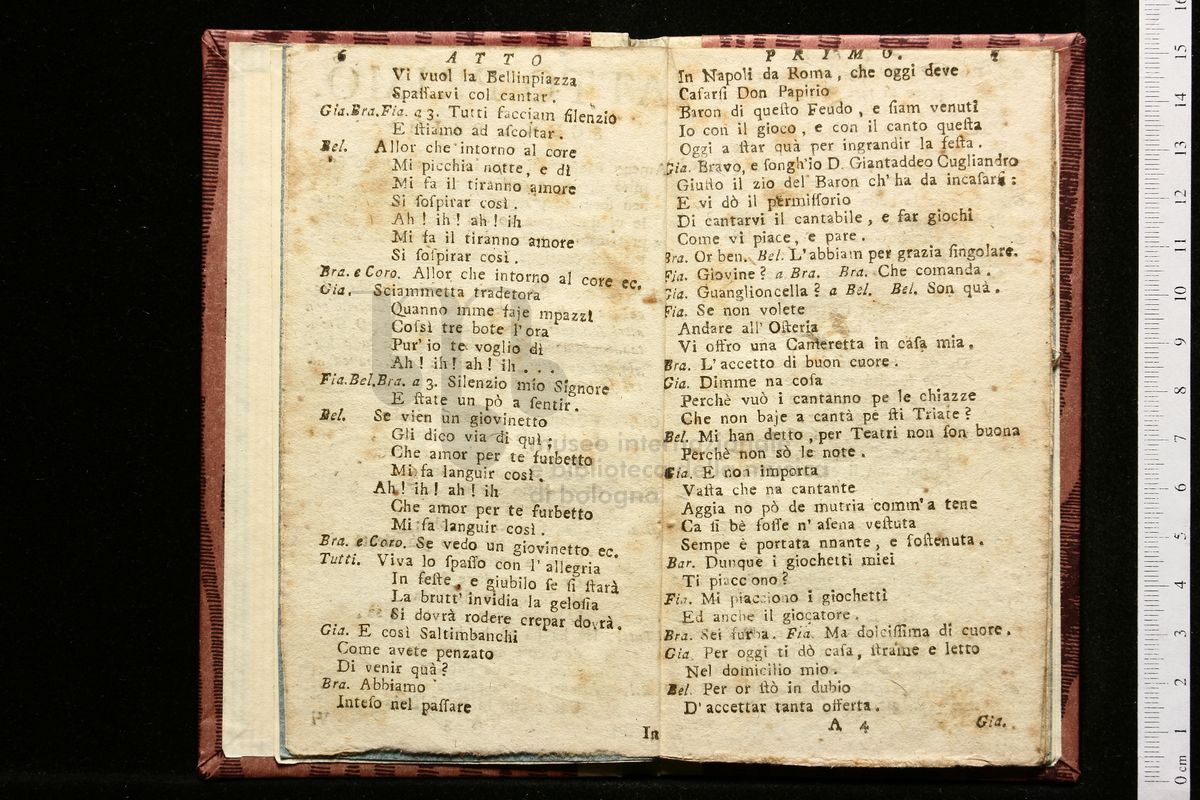 6 ATTO
Vi vuol la Bellinpiazza
Spaſſarvi col cantar.
Gia.Bra.Fia. a 3. Tutti facciam ſilenzio
E ſtiamo ad aſcoltar.
Bel. Allor che intorno al core
Mi picchia notte, e dì
Mi fa il tiranno amore
Si ſoſpirar così.
Ah! ih! ah! ih
Mi fa il tiranno amore
Si ſoſpirar così.
Bra. e Coro. Allor che intorno al core ec.
Gia. Sciammetta tradetora
Quanno mme faje mpazzì
Coſsì tre bote l'ora
Pur' io te voglio dì
Ah! ih! ah! ih...
Fia.Bel.Bra. a 3. Silenzio mio Signore
E ſtate un pò a ſentir.
Bel. Se vien un giovinetto
Gli dico via di quì;
Che amor per te furbetto
Mi fa languir così.
Ah! ih! ah! ih
Che amor per te furbetto
Mi fa languir così.
Bra. e Coro. Se vedo un giovinetto ec.
Tutti. Viva lo ſpaſſo con l'allegria
In feſte, e giubilo ſe ſi ſtarà
La brutt' invidia la geloſia
Si dovrà rodere crepar dovrà.
Gia. E così Saltimbanchi
Come avete penzato
Di venir quà?
Bra. Abbiamo
Inteſo nel paſſare
In
PRIMO. 7
In Napoli da Roma, che oggi deve
Caſarſi Don Papirio
Baron di queſto Feudo, e ſiam venuti
Io con il gioco, e con il canto queſta
Oggi a ſtar quà per ingrandir la feſta.
Gia. Bravo, e ſongh'io D. Giantaddeo Cugliandro
Giuſto il zio del Baron ch'ha da incaſarſi:
E vi dò il permiſſorio
Di cantarvi il cantabile, e far giochi
Come vi piace, e pare.
Bra. Or ben. Bel. L'abbiam per grazia ſingolare.
Fia. Giovine? a Bra. Bra. Che comanda.
Gia. Guanglioncella? a Bel. Bel. Son quà.
Fia. Se non volete
Andare all' Oſteria
Vi offro una Cameretta in caſa mia.
Bra. L'accetto di buon cuore.
Gia. Dimme na coſa
Perchè vuò i cantanno pe le chiazze
Che non baje a cantà pe ſti Triate?
Bel. Mi han detto, per Teatri non ſon buona
Perchè non sò le note.
Gia. E non importa
Vaſta che na cantante
Aggia no pò de mutria comm'a tene
Ca ſi bè foſſe n' aſena veſtuta
Sempe è portata nnante, e ſoſtenuta.
Bar. Dunque i giochetti miei
Ti piacciono?
Fia. Mi piacciono i giochetti
Ed anche il giocatore.
Bra. Sei furba. Fia. Ma dolciſſima di cuore.
Gia. Per oggi ti dò caſa, ſtrame e letto
Nel domicilio mio.
Bel. Per or ſtò in dubio
D'accettar tanta offerta.
A 4 Gia.
museo internazionale
e biblioteca della musica
di bologna
0 cm 1 2 3 4 5 6 7 8 9 10 11 12 13 14 15 16